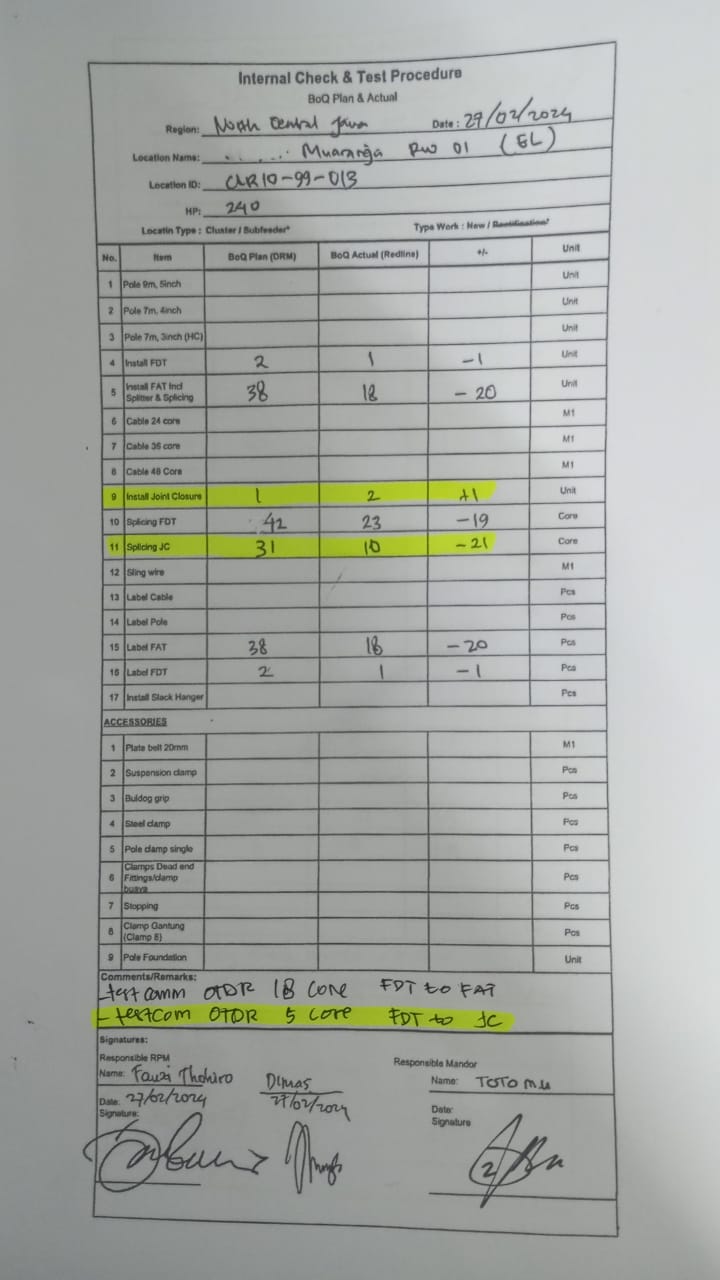 Internal Check & Test Procedure
BoQ Plan & Actual
Region: North Central Java Date: 27/02/2024
Location Name: Muarareja RW 01 (EL)
Location ID: CLR10-99-013
HP: 240
Locatin Type : Cluster / Subfeeder* Type Work : New / Rectification*
No. Item BoQ Plan (DRM) BoQ Actual (Redline) +/- Unit
1 Pole 9m, 5inch Unit
2 Pole 7m, 4inch Unit
3 Pole 7m, 3inch (HC) Unit
4 Install FDT 2 1 -1 Unit
5 Install FAT Incl Splitter & Splicing 38 18 - 20 Unit
6 Cable 24 core M1
7 Cable 36 core M1
8 Cable 48 Core M1
9 Install Joint Closure 1 2 +1 Unit
10 Splicing FDT 42 23 -19 Core
11 Splicing JC 31 10 -21 Core
12 Sling wire M1
13 Label Cable Pcs
14 Label Pole Pcs
15 Label FAT 38 18 -20 Pcs
16 Label FDT 2 1 -1 Pcs
17 Install Slack Hanger Pcs
ACCESSORIES
1 Plate belt 20mm M1
2 Suspension clamp Pcs
3 Buldog grip Pcs
4 Steel clamp Pcs
5 Pole clamp single Pcs
6 Clamps Dead end Fittings/clamp buaya Pcs
7 Stopping Pcs
8 Clamp Gantung (Clamp 8) Pcs
9 Pole Foundation Unit
Comments/Remarks:
- test comm OTDR 18 core FDT to FAT
- testcom OTDR 5 core FDT to JC
Signatures:
Responsible RPM Responsible Mandor
Name: Fauzi Thohiro Dimas Name: TOTO M.U
Date: 27/02/2024 27/02/2024 Date:
Signature: Signature